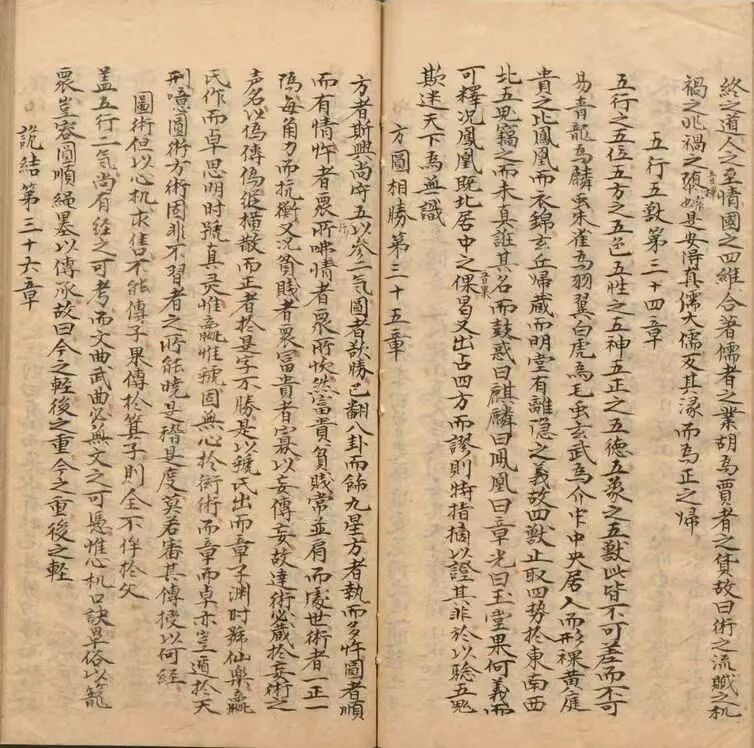 終之道人之至情國之四維合著儒者之業胡為賈者之貨故曰術之流賊之机
禍之兆禍之張如是安得真儒大儒反其濠而為正之歸
五行五獸第三十四章
五行之五位五方之五色五性之五神五正之五德五象之五獸此皆不可差而不可
易青龍為麟虫朱雀為羽翼白虎為毛虫玄武為介虫中央居人而形裸黄庭
貴之比鳳凰而衣錦玄丘帰蔵而明堂有離隐之義故四獸止取四势於東南西
北五鬼竊之而未真誑其名而鼓惑曰麒麟曰鳳凰曰章光曰玉堂果何義而
可釋况鳳凰既北居中之倮曷又出占四方而謬則特指摘以證其非於以驗五鬼
欺迷天下為無識
方圓相勝第三十五章
方者斯興尚守五行以參一氣圓者欲勝已翻八卦而飾九星方者執而多忤圓者順
而有情忤者衆所咈情者衆所忻然富貴貧賤常並肩而處世術者一正一
偽每角力而抗衡又况貧賤者衆富貴者寡以妄傳妄故達術必蔵於妄術之
声名以偽傳偽縱横散而正者於是字不勝是以虢氏出而章子淵时號仙樂嬴
氏作而卓思明时號真灵惟嬴惟虢固無心於衒術而章而卓亦豈逭於天
刑噫圓術方術固非不習者之所能曉是稽是度莫若審其傳授以何經
圓術但以心机求售不能傳子果傳於箕子則全不侔於父
盖五行一氣尚有經之可考而文曲武曲必無文之可慿惟心机口訣罩俗以籠
衆豈容圓順繩墨以傳承故曰今之軽後之重今之重後之軽
說結第三十六章